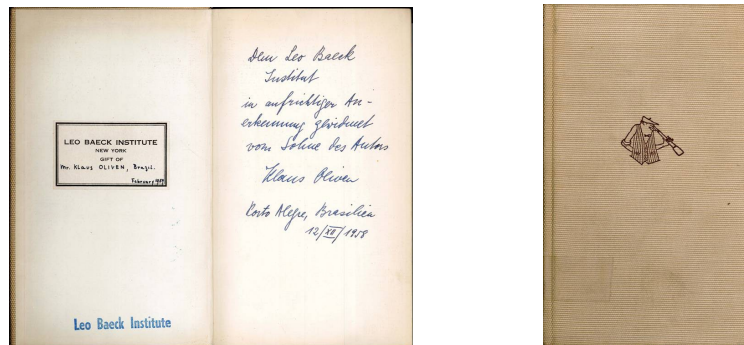 LEO BAECK INSTITUTE
NEW YORK
GIFT OF
Mr. Klaus OLIVEN, Brazil.
February 1959
Leo Baeck Institute
Dem Leo Baeck
Institut
in aufrichtiger An-
erkennung gewidmet
vom Sohne des Autors
Klaus Oliven
Porto Alegre, Brasilien
12/XII/1958